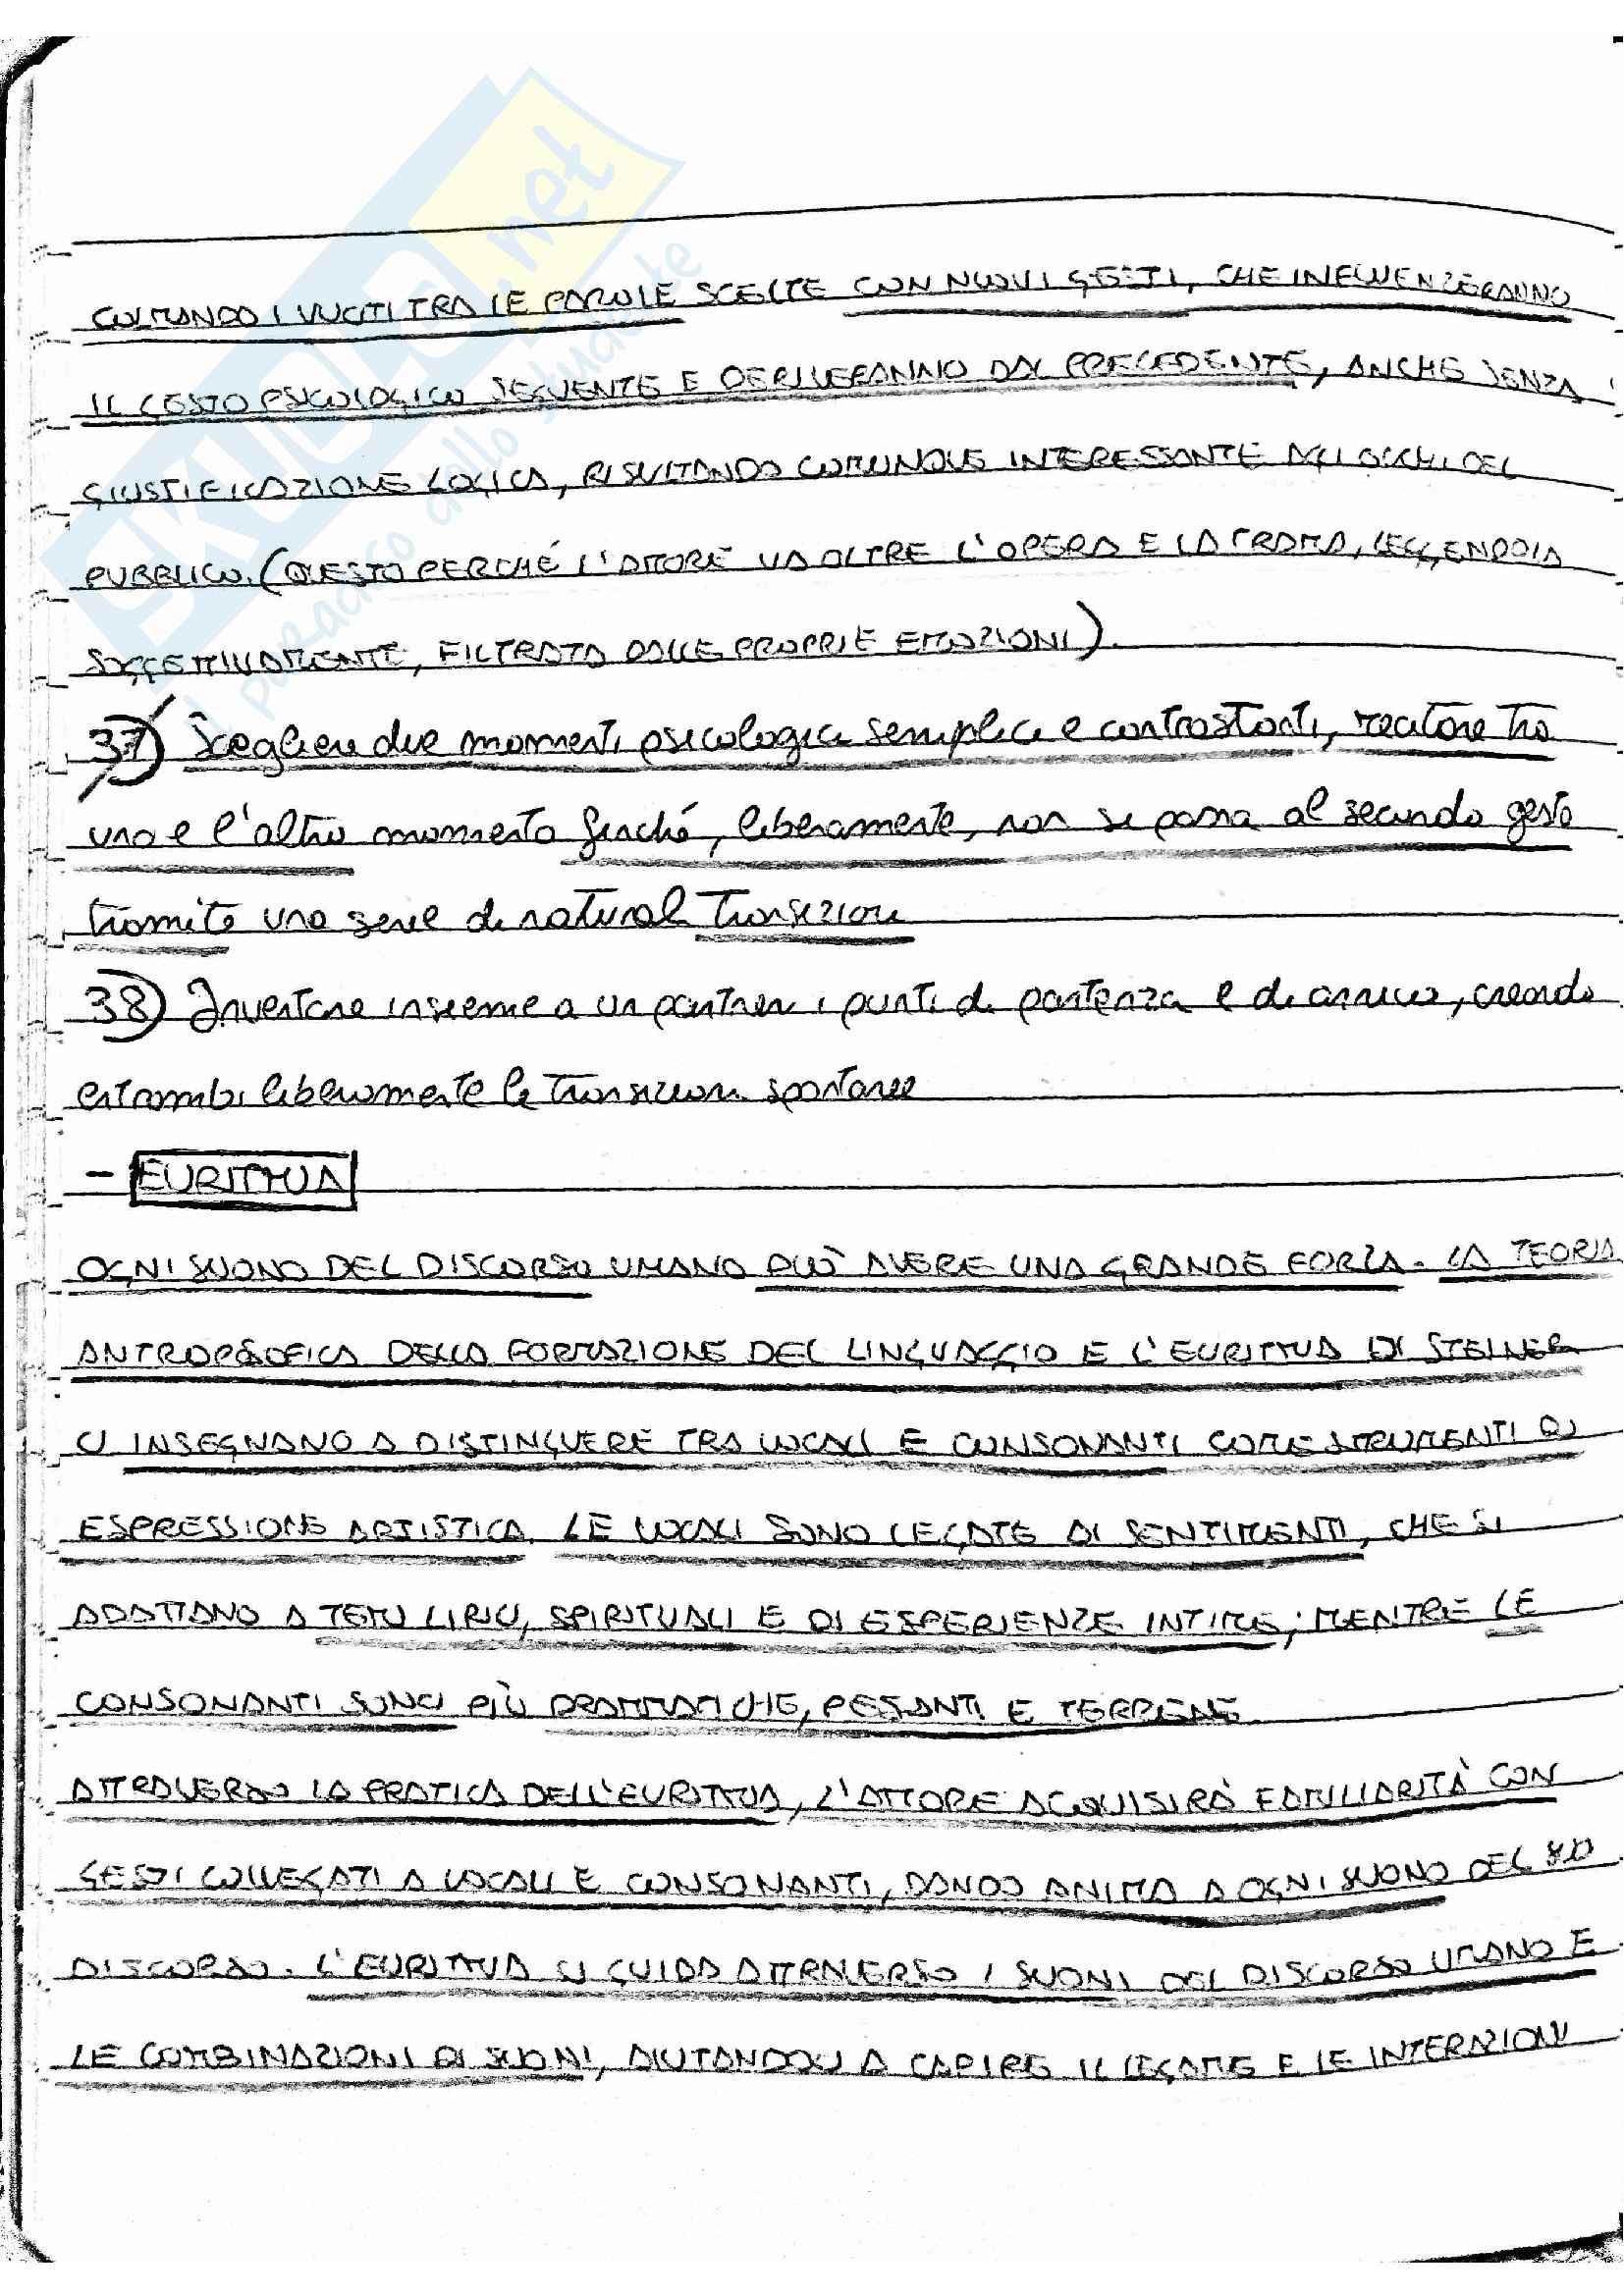 SKUOLA.net
il paradiso dello studente
COLMANDO I VUOTI TRA LE PAROLE SCELTE CON NUOVI GESTI, CHE INFLUENZERANNO
IL GESTO PSICOLOGICO SEGUENTE E DERIVERANNO DAL PRECEDENTE, ANCHE SENZA
GIUSTIFICAZIONE LOGICA, RISULTANDO COMUNQUE INTERESSANTE AGLI OCCHI DEL
PUBBLICO. (QUESTO PERCHÉ L'ATTORE VA OLTRE L'OPERA E LA TRAMA, LEGGENDOLA
SOGGETTIVAMENTE, FILTRATA DALLE PROPRIE EMOZIONI).
37) Scegliere due momenti psicologici semplici e contrastanti, recitare tra
uno e l'altro momento finché, liberamente, non si passa al secondo gesto
tramite una serie di naturali transizioni
38) Inventare insieme a un partner i punti di partenza e di arrivo, creando
entrambi liberamente le transizioni spontanee
- EURITMIA
OGNI SUONO DEL DISCORSO UMANO PUÒ AVERE UNA GRANDE FORZA. LA TEORIA
ANTROPOSOFICA DELLA FORMAZIONE DEL LINGUAGGIO E L'EURITMIA DI STEINER
CI INSEGNANO A DISTINGUERE TRA VOCALI E CONSONANTI COME STRUMENTI DI
ESPRESSIONE ARTISTICA. LE VOCALI SONO LEGATE AI SENTIMENTI, CHE SI
ADATTANO A TEMI LIRICI, SPIRITUALI E DI ESPERIENZE INTIME; MENTRE LE
CONSONANTI SONO PIÙ DRAMMATICHE, PESANTI E TERRENE
ATTRAVERSO LA PRATICA DELL'EURITMIA, L'ATTORE ACQUISIRÀ FAMILIARITÀ CON
GESTI COLLEGATI A VOCALI E CONSONANTI, DANDO ANIMA A OGNI SUONO DEL SUO
DISCORSO. L'EURITMIA CI GUIDA ATTRAVERSO I SUONI DEL DISCORSO UMANO E
LE COMBINAZIONI DI SUONI, AIUTANDOCI A CAPIRE IL LEGAME E LE INTERAZIONI